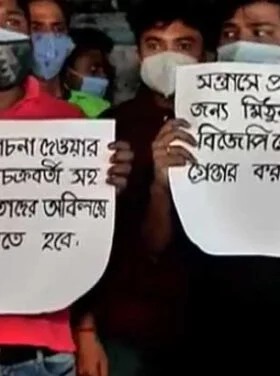 চনা দেওয়ার
চক্রবর্তী সহ
তাদের অবিলম্বে
তে হবে.
সন্ত্রাসে
জন্য মিঠু
বিজেপি
গ্রেপ্তার কর